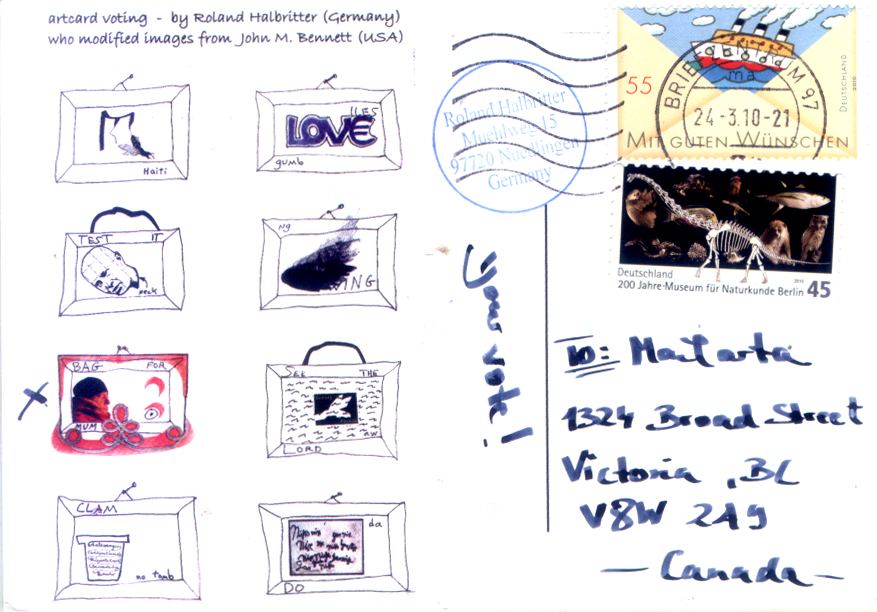 artcard voting - by Roland Halbritter (Germany)
who modified images from John M. Bennett (USA)
Haiti
LOVE
gumb
TEST IT
neck
ng
WING
BAG FOR
MUM
SEE THE
aw
LORD
CLAM
no tomb
da
DO
your vote!
Roland Halbritter
Muehlweg 15
97720 Nuedlingen
Germany
BRIEFZENTRUM 97
ma
24-3.10-21
55
DEUTSCHLAND
2010
MIT GUTEN WÜNSCHEN
Deutschland
200 Jahre·Museum für Naturkunde Berlin 45
To: Mailarta
1324 Broad Street
Victoria, BC
V8W 2A9
- Canada -